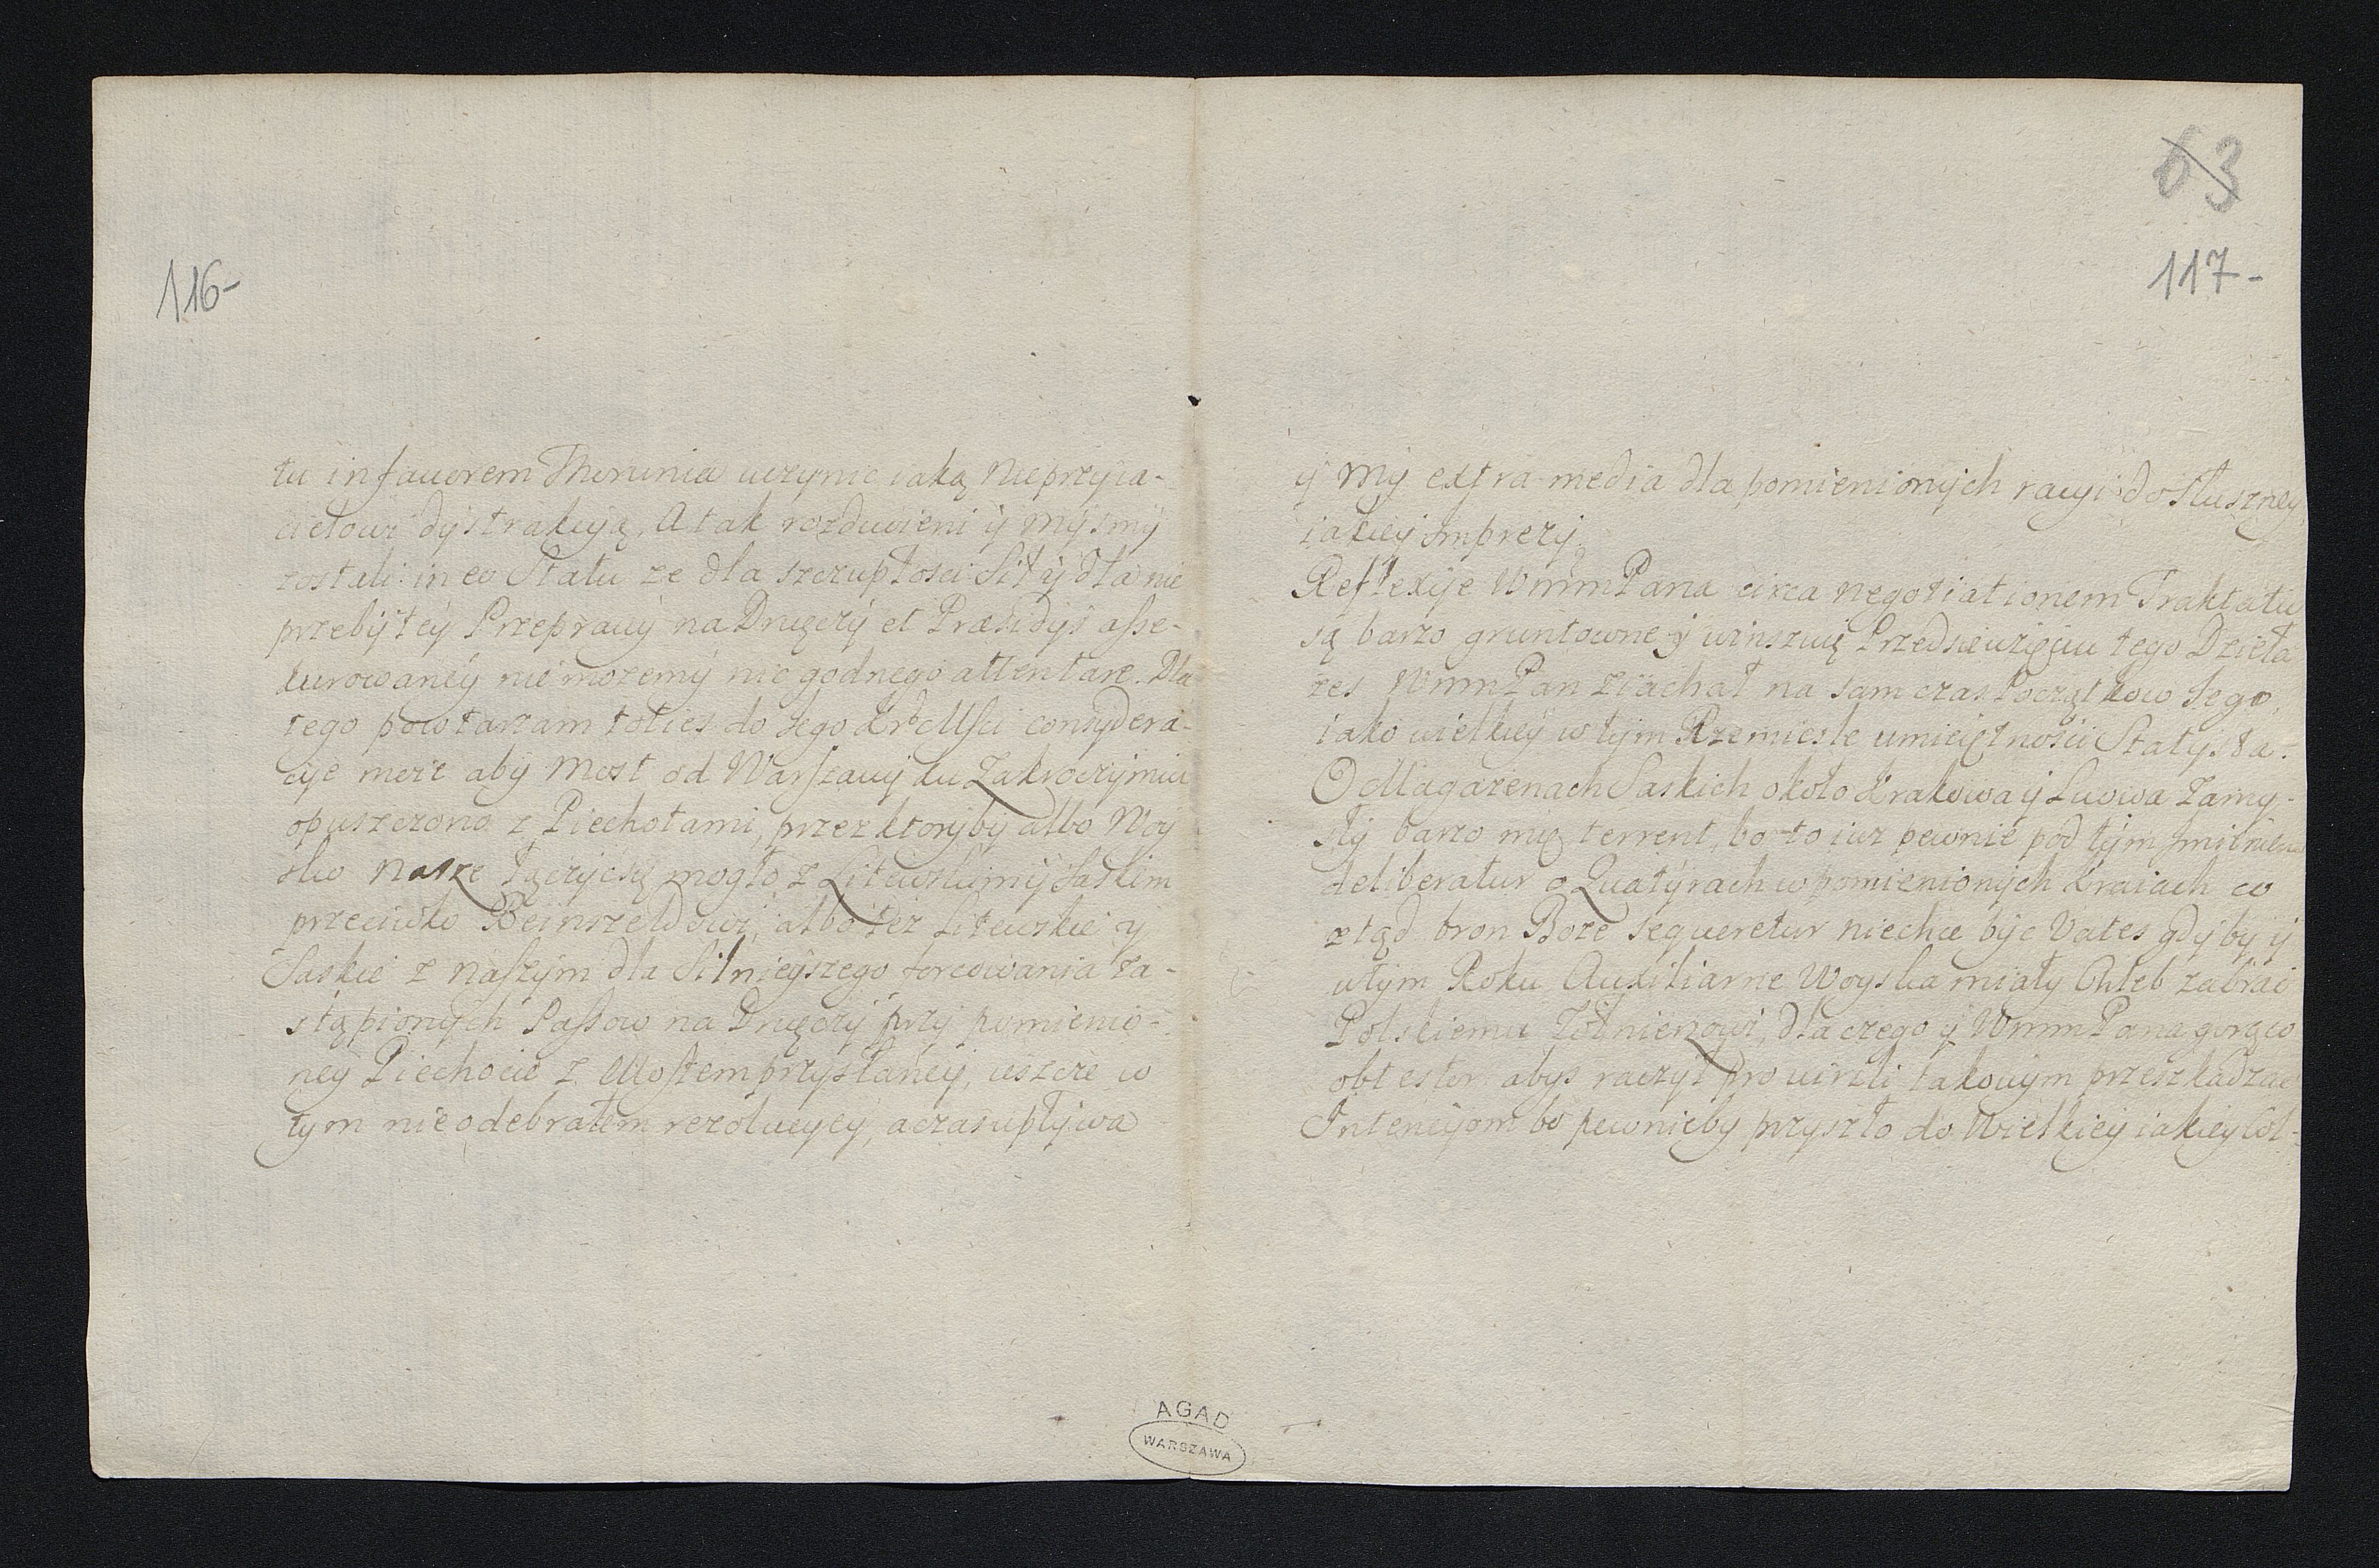 116-
tu in favorem Thorunia uczynic iaką Nieprzyia-
cielowi dystrakcyą, A tak rozdwoieni ÿ mÿsmÿ
zostali in eo Statu ze dla szczupłosci Sił ÿ dla nie
przebÿtey Przeprawÿ na Drwęczÿ et Præsidÿs asse-
kurowanéÿ nie mozemÿ nic godnego attentare. Dla
tego powtarzam toties do Jego Krb Msci consydera-
cye moie abÿ Most od Warszawÿ ku Zakroczÿmiu
opuszczono z Piechotami, przez ktorÿby albo Woÿ
sko nasze łączÿc się mogło z Litewskim ÿ Saskim
przeciwko Reinszeldowi, albo tez Litewskie ÿ
Saskie z naszÿm dla Silnieÿszego forcowania za-
stąpionÿch Passow na Drwęczÿ przÿ pomienio-
neÿ Piechocie z Mostem przÿsłaneÿ, ieszcze w
tÿm nie odebrałem rezolucyeÿ, a czas upłÿwa
63
117-
ÿ mÿ extra media dla pomienionÿch racyi do Słuszneÿ
iakieÿ imprezÿ.
Reflexÿe WmmPana circa negotiationem Traktatu
są barzo gruntowne ÿ winszuię Przedsięwzięciu tego Dzieła
zes WmmPan ziachał na sam czas Początkow Jego,
iako wielkieÿ w tÿm Rzemiesle umieiętnosci Statÿsta.
O Magazenach Saskich około Krakowa ÿ Lwowa Zamÿ-
słÿ barzo mię terrent, bo to iuz pewnie pod tÿm
deliberatur o Quatÿrach w pomienionÿch Kraiach co
ztąd bron Boze sequeretur niechce bÿc Vates gdÿbÿ ÿ
w tÿm Roku Auxiliarne Woÿska miałÿ Chleb zabrac
Polskiemu Zołnierzowi, dla czego ÿ WmmPana gorąco
obtestor abÿs raczÿł pro virili takowÿm przeszkadzac
Intencÿom bo pewniebÿ przÿszło do Wielkieÿ iakieÿ Col-
AGAD
WARSZAWA